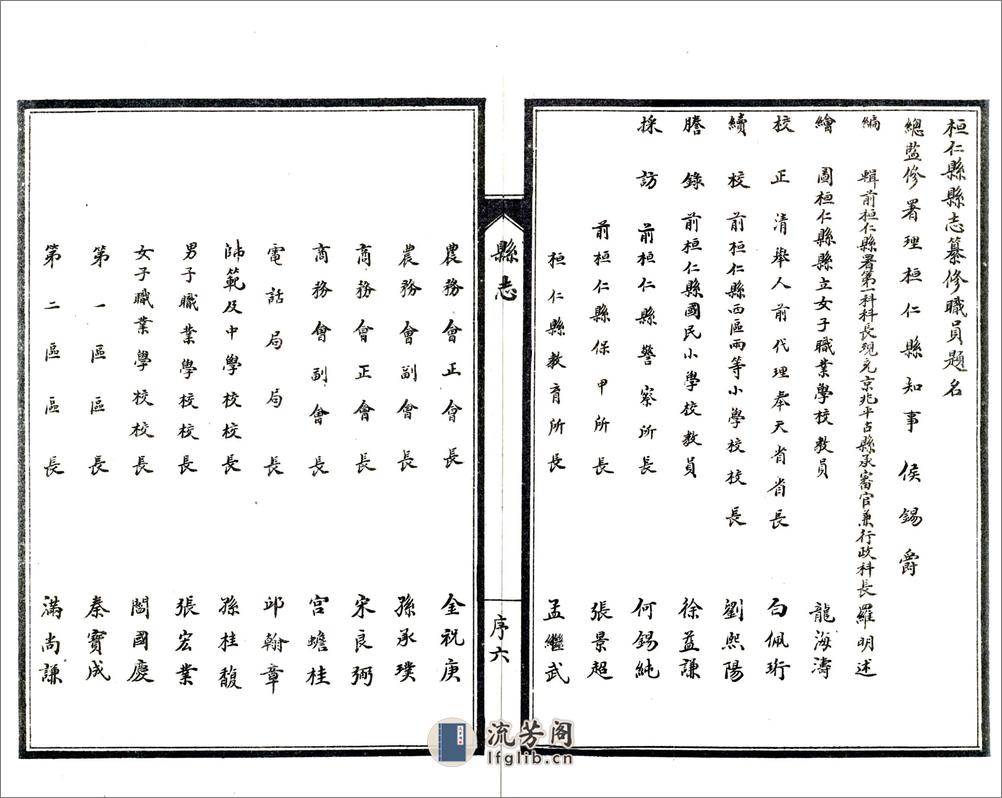 桓仁縣縣志纂修職員題名
總監修署理桓仁縣知事 侯錫爵
編輯前桓仁縣署第一科科長現充京兆平古縣承審官兼行政科長羅明述
繪圖桓仁縣縣立女子職業學校教員 龍海濤
校正清舉人前代理奉天省省長 白佩珩
續校前桓仁縣西區兩等小學校校長 劉熙陽
謄錄前桓仁縣國民小學校教員 徐益謙
採訪前桓仁縣警察所長 何錫純
前桓仁縣保甲所長 張景超
桓仁縣教育所長 孟繼武
縣志
序六
農務會正會長 金祝庚
農務會副會長 孫承璞
商務會正會長 宋良弼
商務會副會長 宮蟾桂
電話局局長 邱翰章
師範及中學校校長 孫桂馥
男子職業學校校長 張宏業
女子職業學校校長 閻國慶
第一區區長 秦寶成
第二區區長 滿尚謙
流芳阁
lfglib.cn